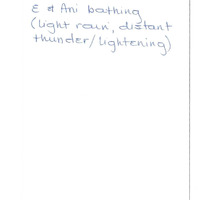 E & Ani bathing
(light rain, distant
thunder/lightening)